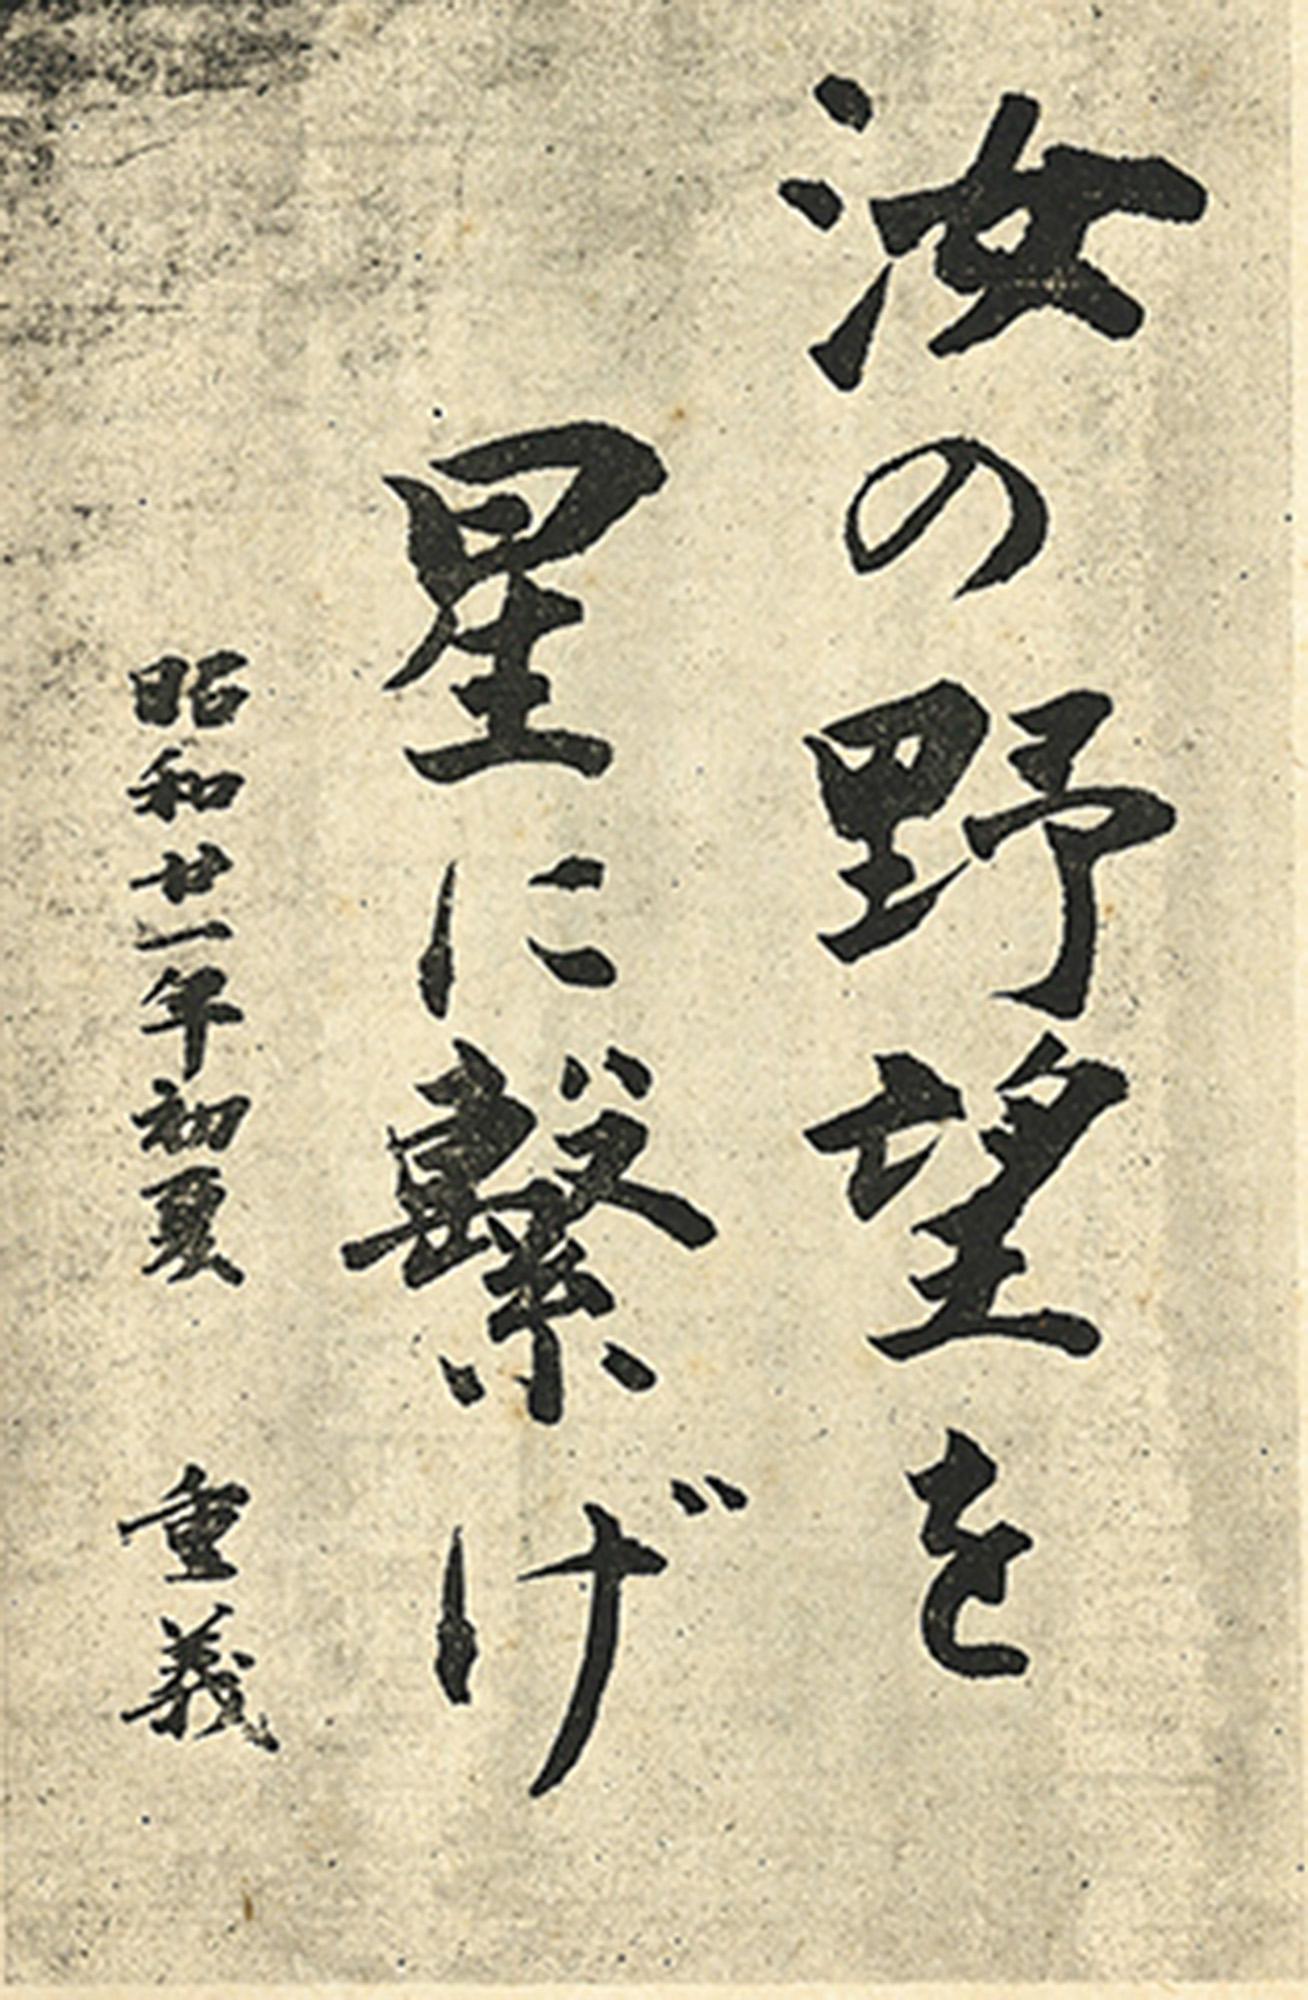 汝の野望を
星に繋げ
昭和廿一年初夏 重義